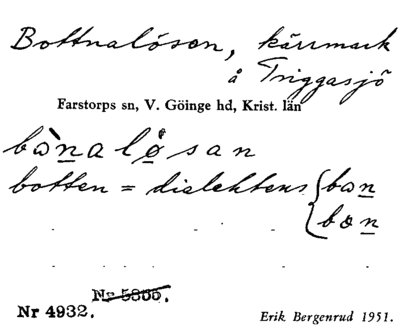 Bottnalösen, kärrmark
å Triggasjö
Farstorps sn, V. Göinge hd, Krist. län
bònalø̀san
botten = dialektens {bɷn
{bon
Nr 5855.
Nr 4932.
Erik Bergenrud 1951.